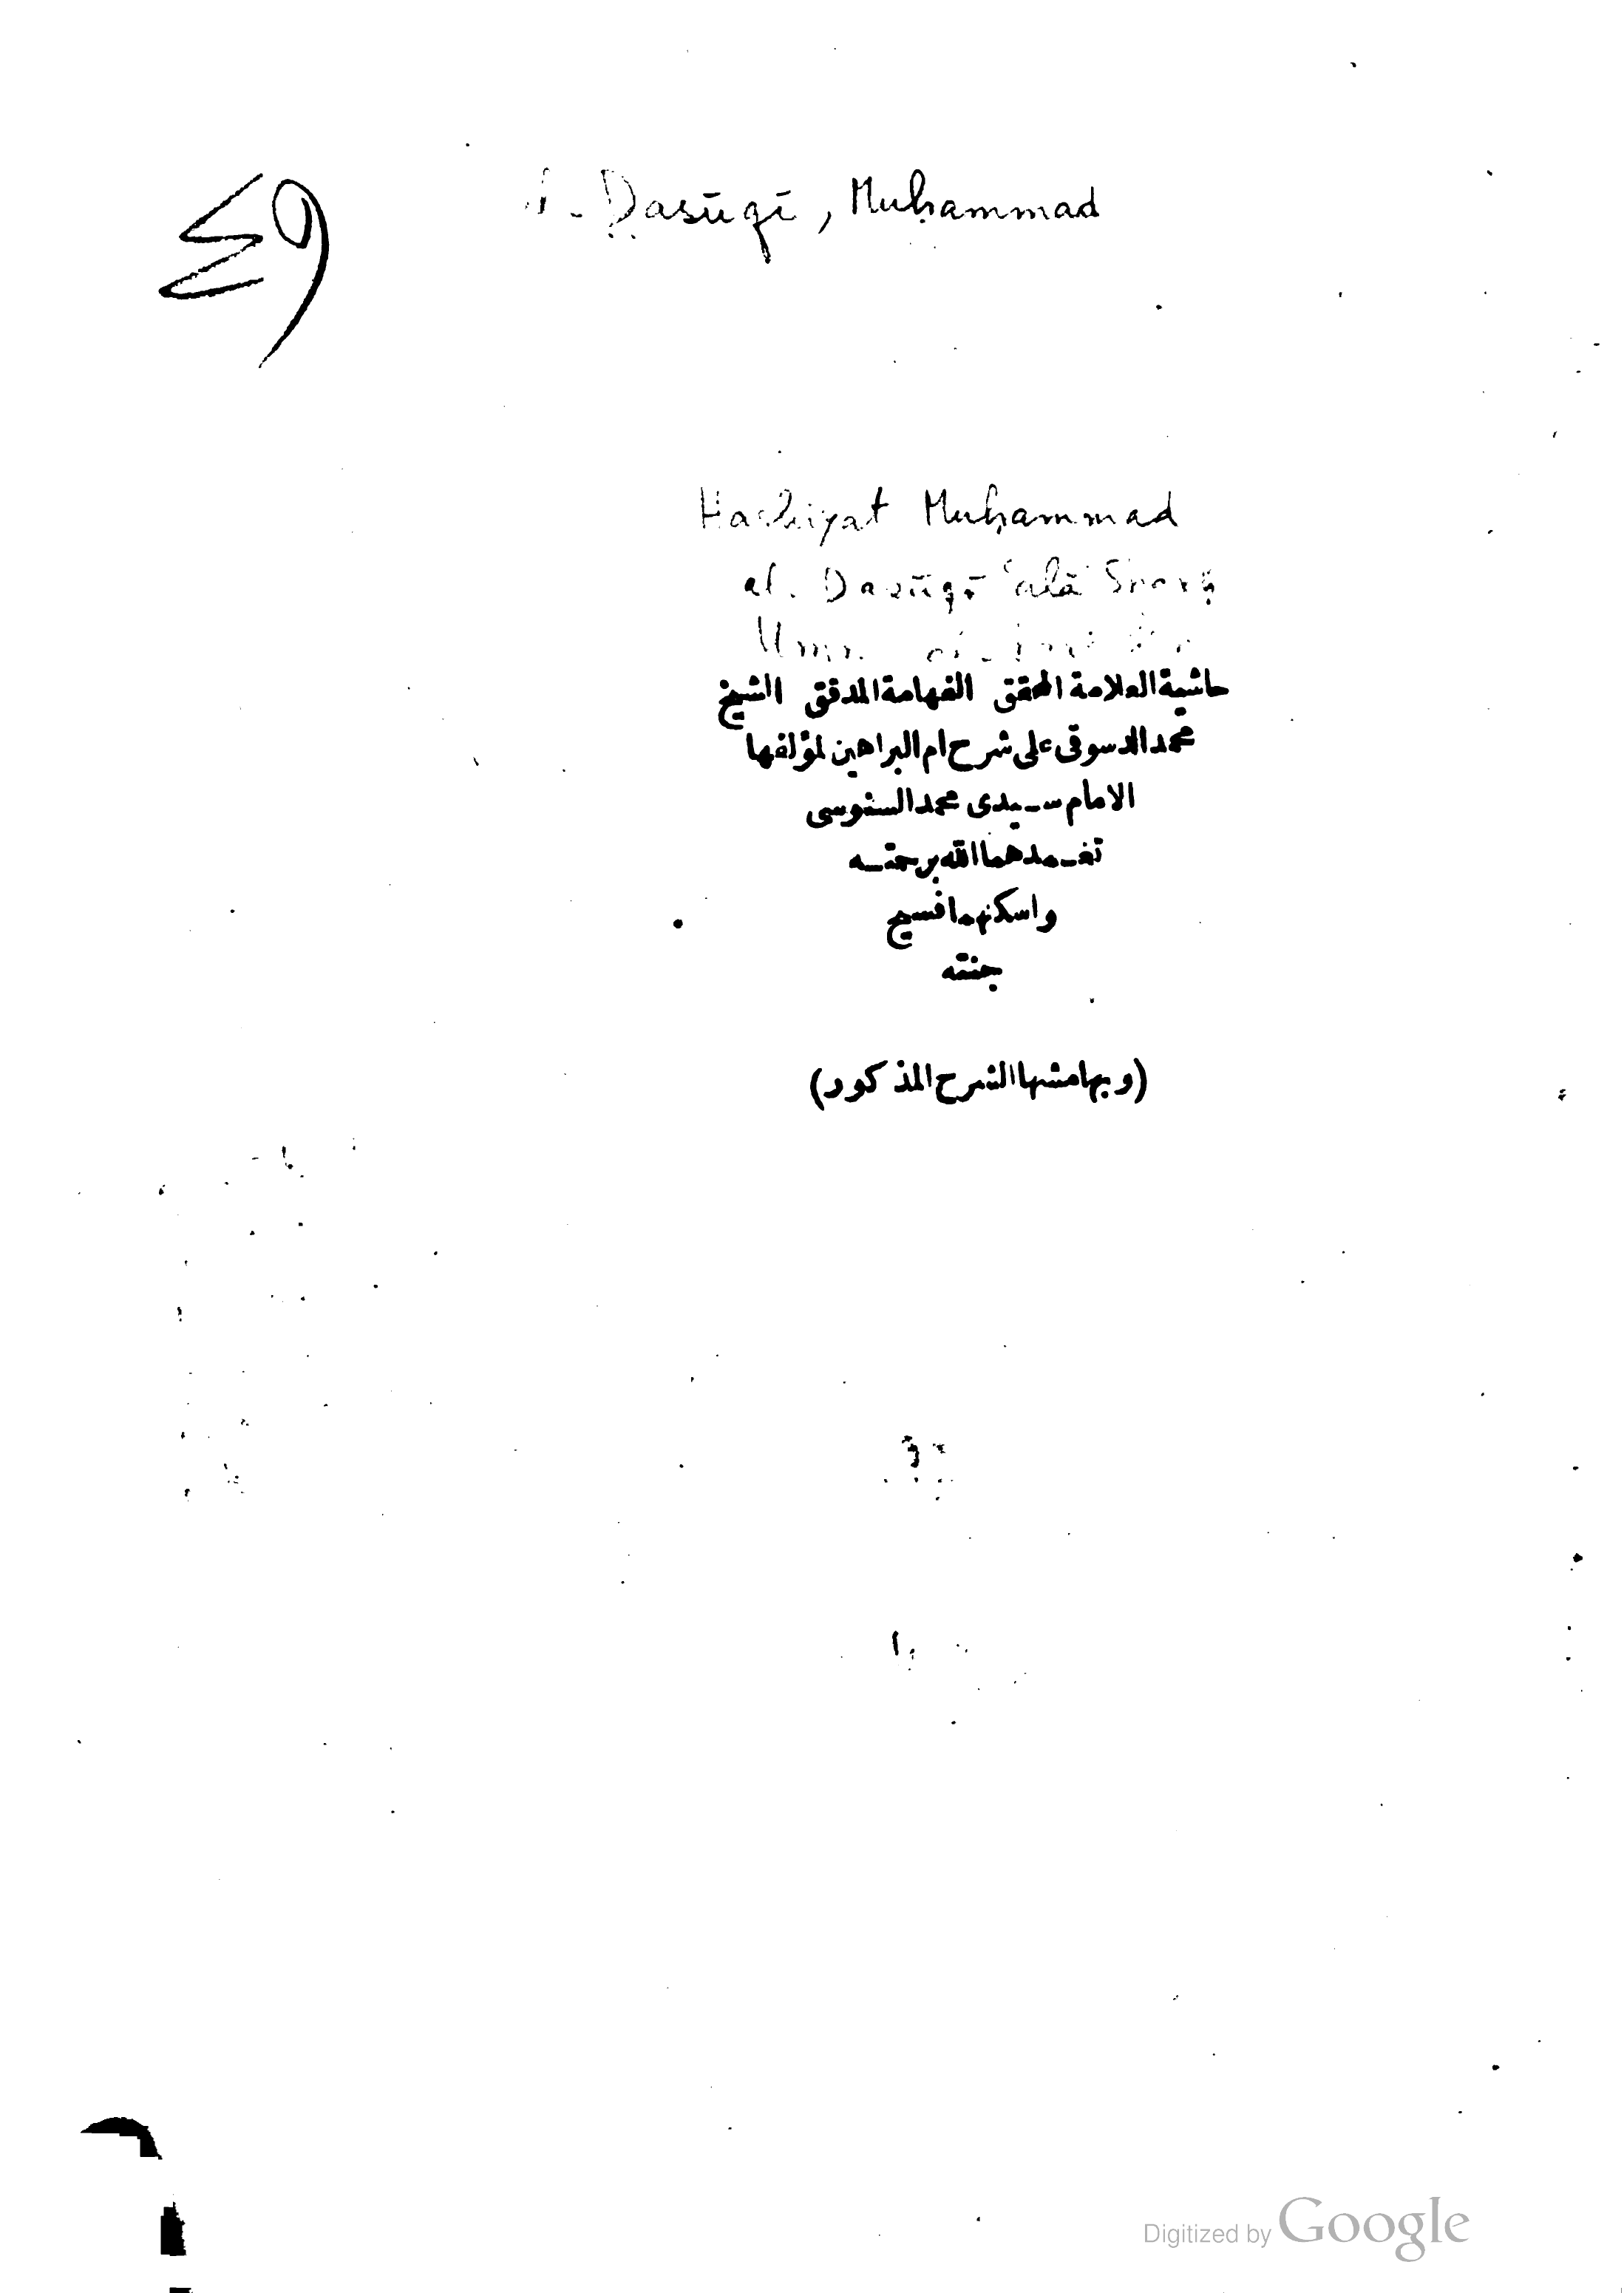 ٤٩
al-Dasūqī, Muḥammad
Hashiyat Muḥammad
al-Dasūqī 'alā Sharḥ
Umm
حاشية العلامة المحقق الفهامة المدقق الشيخ
محمد الدسوقى على شرح ام البراهين لمؤلفها
الامام سيدى محمد السنوسى
تغمدهما الله برحمته
واسكنهما فسيح
جنته
(وبهامشها الشرح المذكور)
Digitized by Google